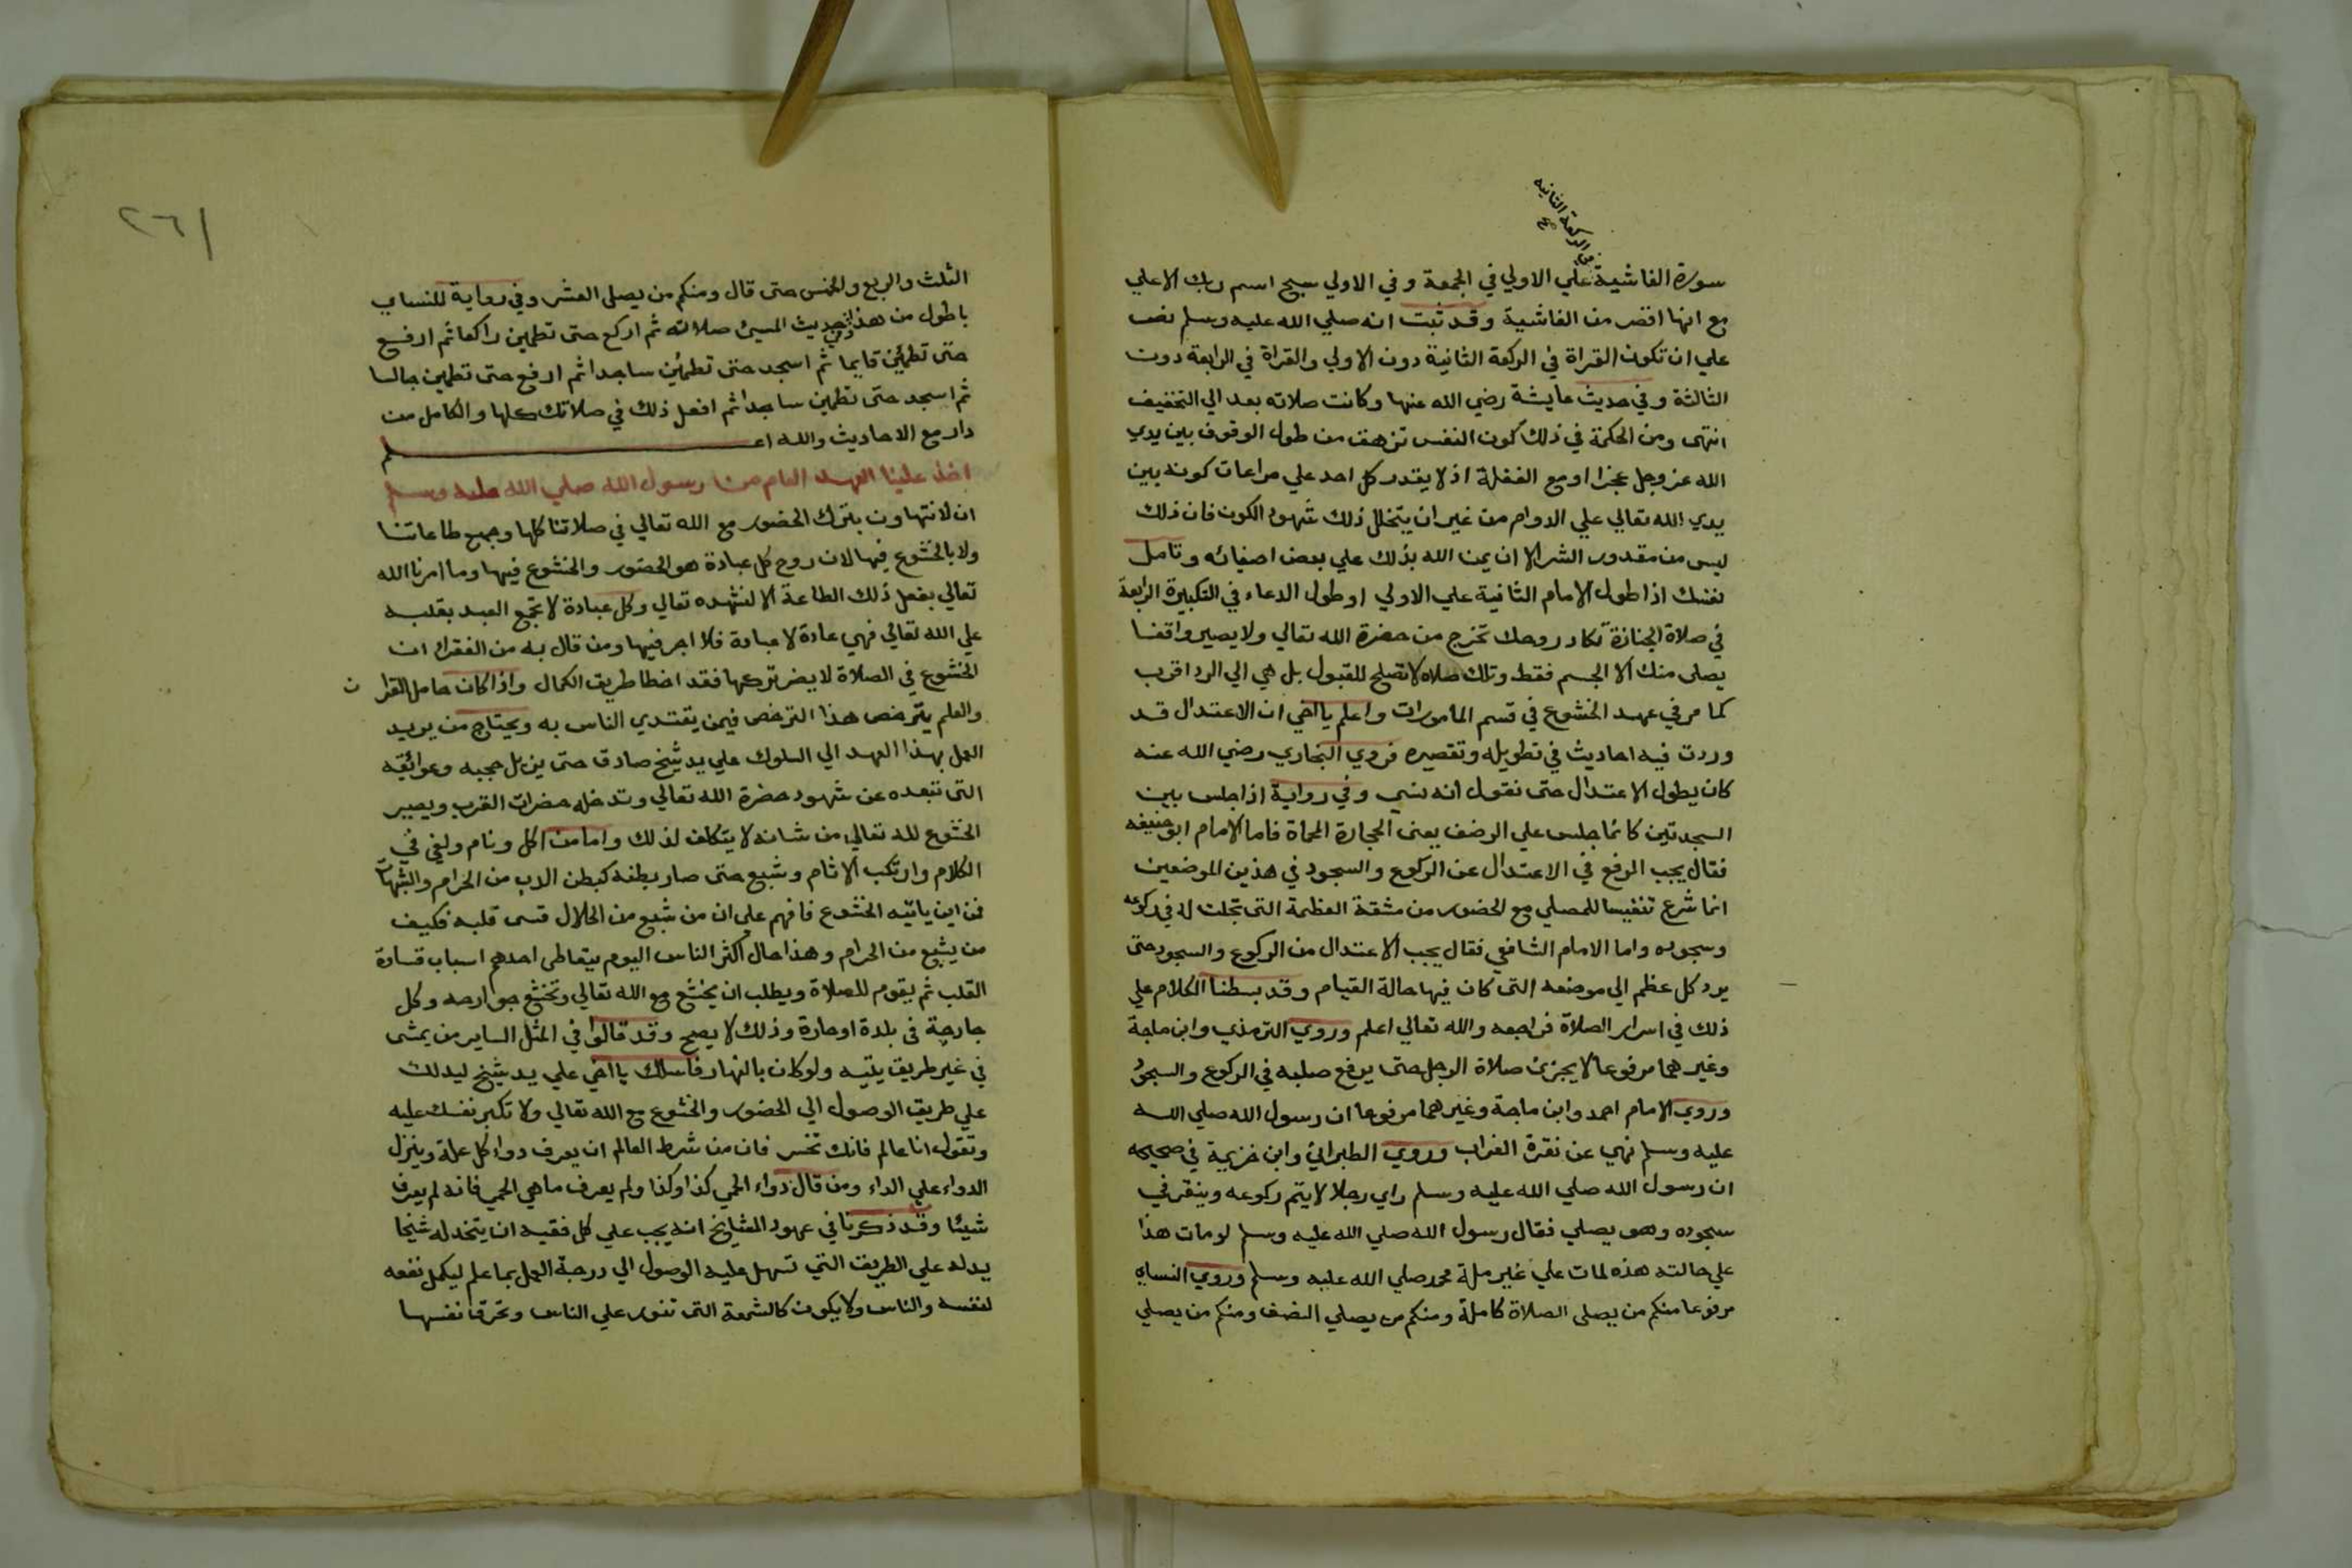 من الركعة الثانيه
صح
سورة الغاشية علي الاولي في الجمعة وفي الاولي سبح اسم ربك الاعلي
مع انها اقصر من الغاشية وقد ثبت انه صلي الله عليه وسلم نص
علي ان تكون القراة في الركعة الثانية دون الاولي والقراة في الرابعة دون
الثالثة وفي حديث عايشة رضي الله عنها وكانت صلاته بعد الي التخفيف
انتهى ومن الحكمة في ذلك كون النفس تزهق من طول الوقوف بين يدي
الله عز وجل عجزا او مع الغفلة اذ لا يقدر كل احد علي مراعات كونه بين
يدي الله تعالي علي الدوام من غير ان يتخلل ذلك شهود الكون فان ذلك
ليس من مقدور الشر الا ان يمن الله بذلك علي بعض اصفيائه وتامل
نفسك اذا طول الامام الثانية علي الاولي او طول الدعاء في التكبيرة الرابعة
في صلاة الجنازة تكاد روحك تخرج من حضرة الله تعالي ولا يصير واقفا
يصلى منك الا الجسم فقط وتلك صلاه لا تصلح للقبول بل هي الي الرد اقرب
كما مر في عهد الخشوع في قسم المامورات واعلم يا اخي ان الاعتدال قد
وردت فيه احاديث في تطويله وتقصيره فروي البخاري رضي الله عنه
كان يطول الاعتدال حتى نقول انه نسي وفي رواية اذا جلس بين
السجدتين كانما جلس علي الرضف يعنى الحجارة المحماة فاما الامام ابو حنيفه
فقال يجب الرفع في الاعتدال عن الركوع والسجود في هذين الموضعين
انما شرع تنفيسا للمصلي مع الحضور من مشقة العظمة التى تجلت له في ركوعه
وسجوده واما الامام الشافعي فقال يجب الاعتدال من الركوع والسجود حتى
يرد كل عظم الي موضعه التى كان فيها حالة القيام وقد بسطنا الكلام علي
ذلك في اسرار الصلاة فراجعه والله تعالي اعلم وروي الترمذي وابن ماجة
وغيرهما مرفوعا لا يجزئ صلاة الرجل حتى يرفع صلبه في الركوع والسجود
وروي الامام احمد وابن ماجة وغيرهما مرفوعا ان رسول الله صلي الله
عليه وسلم نهي عن نقرة الغراب وروي الطبراني وابن خزيمة في صحيحه
ان رسول الله صلي الله عليه وسلم راي رجلا لا يتم ركوعه وينقر في
سجوده وهو يصلي فقال رسول الله صلي الله عليه وسلم لو مات هذا
علي حالته هذه لمات علي غير ملة محمد صلي الله عليه وسلم وروي النساي
مرفوعا منكم من يصلى الصلاة كاملة ومنكم من يصلي النصف ومنكم من يصلي
٢٦١
الثلث والربع والخمس حتى قال ومنكم من يصلى العشر وفي رواية للنساي
باطول من هذا وفي حديث المسئ صلاته ثم اركع حتى تطمين راكعا ثم ارفع
حتى تطمئن قايما ثم اسجد حتى تطمئن ساجدا ثم ارفع حتى تطمين جالسا
ثم اسجد حتى تطمين ساجدا ثم افعل ذلك في صلاتك كلها والكامل من
دار مع الاحاديث والله اعلم
اخذ علينا العهد العام من رسول الله صلي الله عليه وسلم
ان لا نتهاون بترك الحضور مع الله تعالي في صلاتنا كلها وجميع طاعاتنا
ولا بالخشوع فيها لان روح كل عبادة هو الحضور والخشوع فيها وما امرنا الله
تعالي بفعل ذلك الطاعة الا لنشهده تعالي وكل عبادة لا تجمع العبد بقلبه
علي الله تعالي فهي عادة لا عبادة فلا اجر فيها ومن قال به من الفقراء ان
الخشوع في الصلاة لا يضر تركها فقد اخطا طريق الكمال واذا كان حامل القران
والعلم يترخص هذا الترخص فيمن يقتدي الناس به ويحتاج من يريد
العمل بهذا العهد الي السلوك علي يد شيخ صادق حتى يزيل حجبه وعوائقه
التى تبعده عن شهود حضرة الله تعالي وتدخله حضرات القرب ويصير
الخشوع لله تعالي من شانه لا يتكلف لذلك واما من اكل ونام ولغي في
الكلام وارتكب الاثام وشبع حتى صار بطنه كبطن الدب من الحرام والشبهات
فمن اين ياتيه الخشوع فافهم علي ان من شبع من الحلال قسى قلبه فكيف
من يشبع من الحرام وهذا حال اكثر الناس اليوم يتعاطى احدهم اسباب قساوة
القلب ثم يقوم للصلاة ويطلب ان يخشع مع الله تعالي وتخشع جوارحه وكل
جارحة في بلدة او حارة وذلك لا يصح وقد قالوا في المثل الساير من يمشى
في غير طريق يتيه ولو كان بالنهار فاسلك يا اخي علي يد شيخ ليدلك
علي طريق الوصول الي الحضور والخشوع مع الله تعالي ولا تكبر نفسك عليه
وتقول انا عالم فانك تخسر فان من شرط العالم ان يعرف دواء كل علة وينزل
الدواء علي الداء ومن قال دواء الحمي كذا وكذا ولم يعرف ما هي الحمي فانه لم يعرف
شيئا وقد ذكرنا في عهود المشايخ انه يجب علي كل فقيه ان يتخذ له شيخا
يدله علي الطريق التي تسهل عليه الوصول الي درجة العمل بما علم ليكمل نفعه
لنفسه والناس ولا يكون كالشمعة التى تنور علي الناس وتحرق نفسها